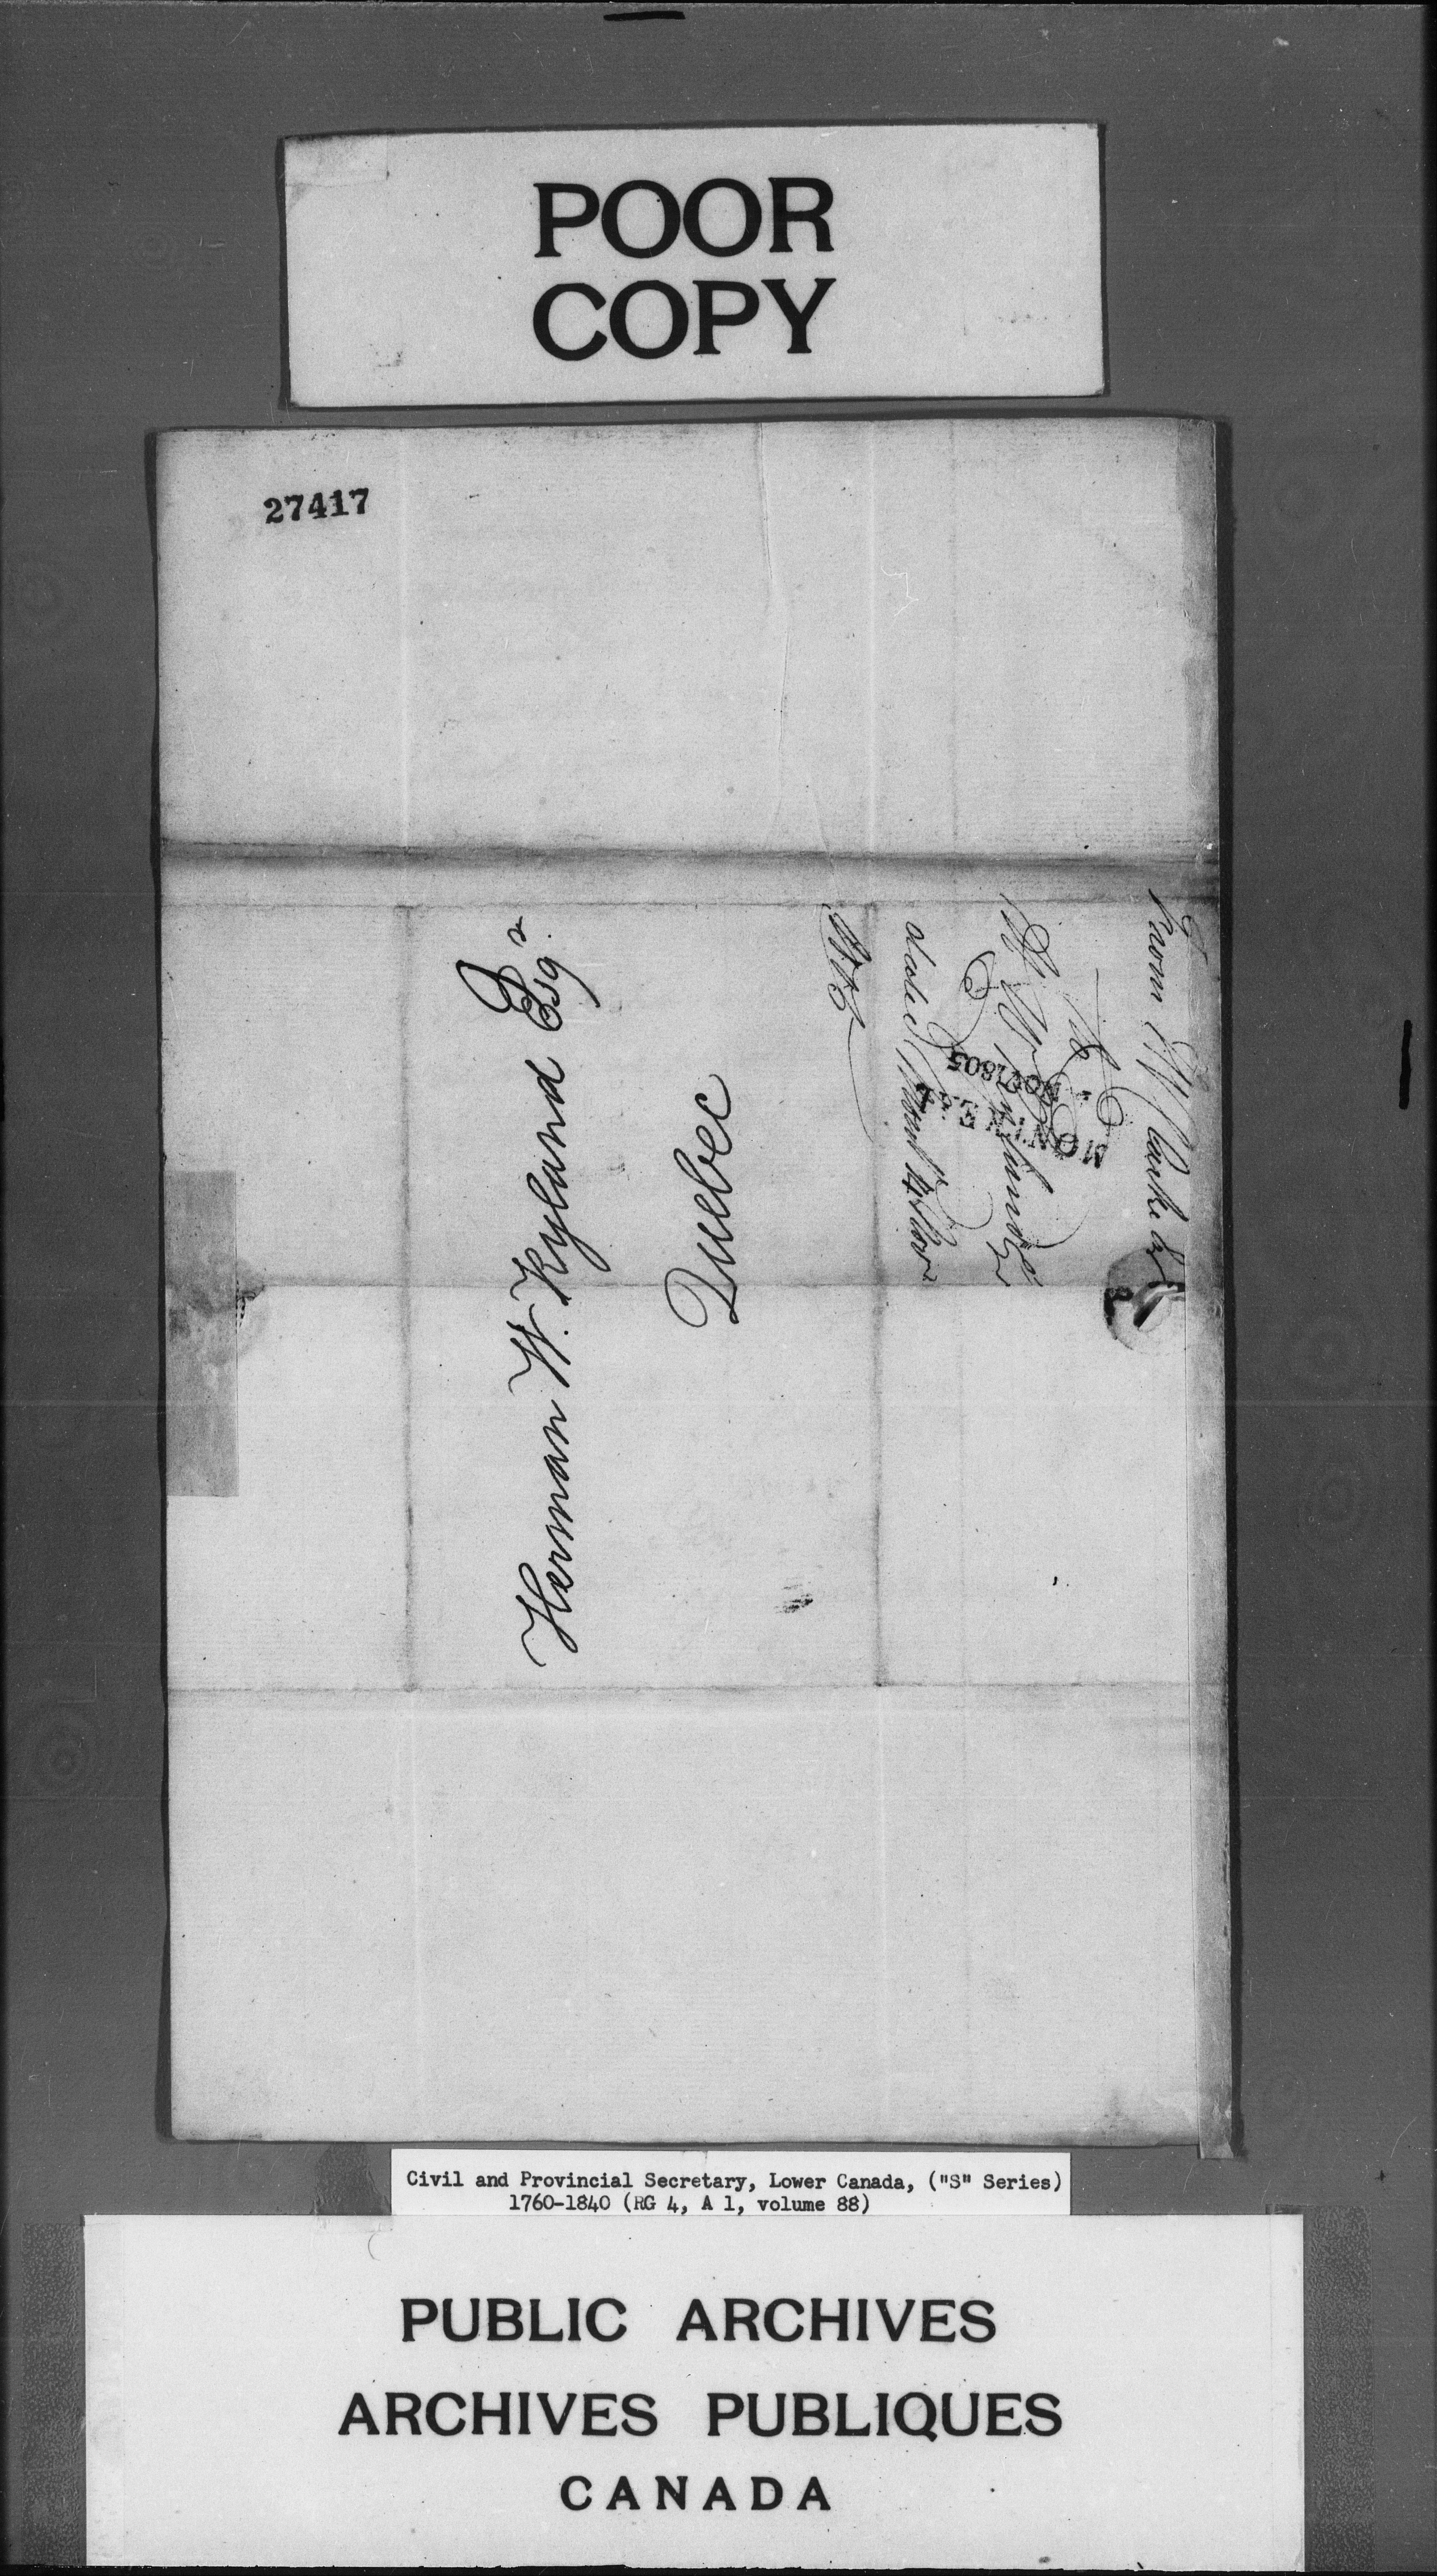 POOR
COPY
27417
Herman W. Ryland Esqr.
Quebec
From
to
H W Ryland
dated
MONTREAL
1805
Civil and Provincial Secretary, Lower Canada, ("S" Series)
1760-1840 (RG 4, A 1, volume 88)
PUBLIC ARCHIVES
ARCHIVES PUBLIQUES
CANADA